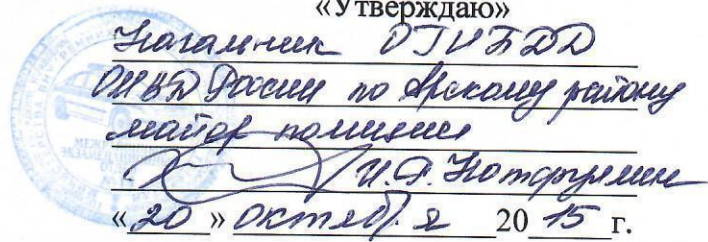 «Утверждаю»
Начальник ОГИБДД
ОМВД России по Арскому району
майор полиции
И.Ф.
«20» октября 2015 г.